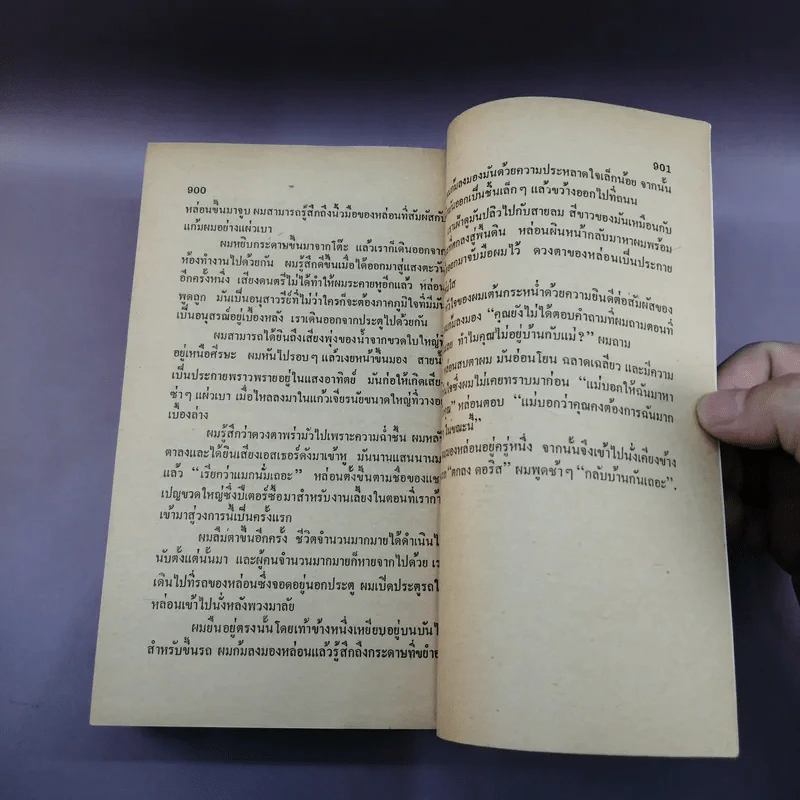 900
หล่อนขึ้นมาจูบ ผมสามารถรู้สึกถึงนิ้วมือของหล่อนที่สัมผัสกับ
แก้มผมอย่างแผ่วเบา
ผมหยิบกระดาษขึ้นมาจากโต๊ะ แล้วเราก็เดินออกจาก
ห้องทำงานไปด้วยกัน ผมรู้สึกดีขึ้นเมื่อได้ออกมาสู่แสงตะวัน
อีกครั้งหนึ่ง เสียงดนตรีไม่ได้ทำให้ผมระคายหูอีกแล้ว หล่อน
พูดถูก มันเป็นอนุสาวรีย์ที่ไม่ว่าใครก็จะต้องภาคภูมิใจที่มีมัน
เป็นอนุสรณ์อยู่เบื้องหลัง เราเดินออกจากประตูไปด้วยกัน
ผมสามารถได้ยินถึงเสียงพุ่งของน้ำจากขวดใบใหญ่ที่
อยู่เหนือศีรษะ ผมหันไปรอบๆ แล้วเงยหน้าขึ้นมอง สายน้ำ
เป็นประกายพราวพรายอยู่ในแสงอาทิตย์ มันก่อให้เกิดเสีย
ซ่าๆ แผ่วเบา เมื่อไหลลงมาในแก้วเจียรนัยขนาดใหญ่ที่วางอ
เบื้องล่าง
ผมรู้สึกว่าดวงตาพร่ามัวไปเพราะความฉ่ำชื้น ผมหลั
ตาลงและได้ยินเสียงเอสเธอร์ดังมาเข้าหู มันนานแสนนานม
แล้ว “เรียกว่าแมกนั่มเถอะ” หล่อนตั้งขึ้นตามชื่อของแช
เปญขวดใหญ่ซึ่งปีเตอร์ซื้อมาสำหรับงานเลี้ยงในตอนที่เราก้า
เข้ามาสู่วงการนี้เป็นครั้งแรก
ผมลืมตาขึ้นอีกครั้ง ชีวิตจำนวนมากมายได้ดำเนินไ
นับตั้งแต่นั้นมา และผู้คนจำนวนมากมายก็หายจากไปด้วย เร
เดินไปที่รถของหล่อนซึ่งจอดอยู่นอกประตู ผมเปิดประตูรถใ
หล่อนเข้าไปนั่งหลังพวงมาลัย
ผมยืนอยู่ตรงนั้นโดยเท้าข้างหนึ่งเหยียบอยู่บนบันไ
สำหรับขึ้นรถ ผมก้มลงมองหล่อนแล้วรู้สึกถึงกระดาษที่ขยำอ
901
ก้มลงมองมันด้วยความประหลาดใจเล็กน้อย จากนั้น
กันออกเป็นชิ้นเล็กๆ แล้วขว้างออกไปที่ถนน
เราเฝ้าดูมันปลิวไปกับสายลม สีขาวของมันเหมือนกับ
ที่ตกลงสู่พื้นดิน หล่อนผินหน้ากลับมาหาผมพร้อม
ออกมาจับมือผมไว้ ดวงตาของหล่อนเป็นประกาย
ใส
ใจของผมเต้นกระหน่ำด้วยความยินดีต่อสัมผัสของ
ก้มลงมอง “คุณยังไม่ได้ตอบคำถามที่ผมถามตอนที่
เลย ทำไมคุณไม่อยู่บ้านกับแม่?” ผมถาม
หล่อนสบตาผม มันอ่อนโยน ฉลาดเฉลียว และมีความ
ใจซึ่งผมไม่เคยทราบมาก่อน “แม่บอกให้ฉันมาหา
คุณ” หล่อนตอบ “แม่บอกว่าคุณคงต้องการฉันมาก
ในขณะนี้”
มองหล่อนอยู่ครู่หนึ่ง จากนั้นจึงเข้าไปนั่งเคียงข้าง
“ตกลง ดอริส” ผมพูดช้าๆ “กลับบ้านกันเถอะ”.